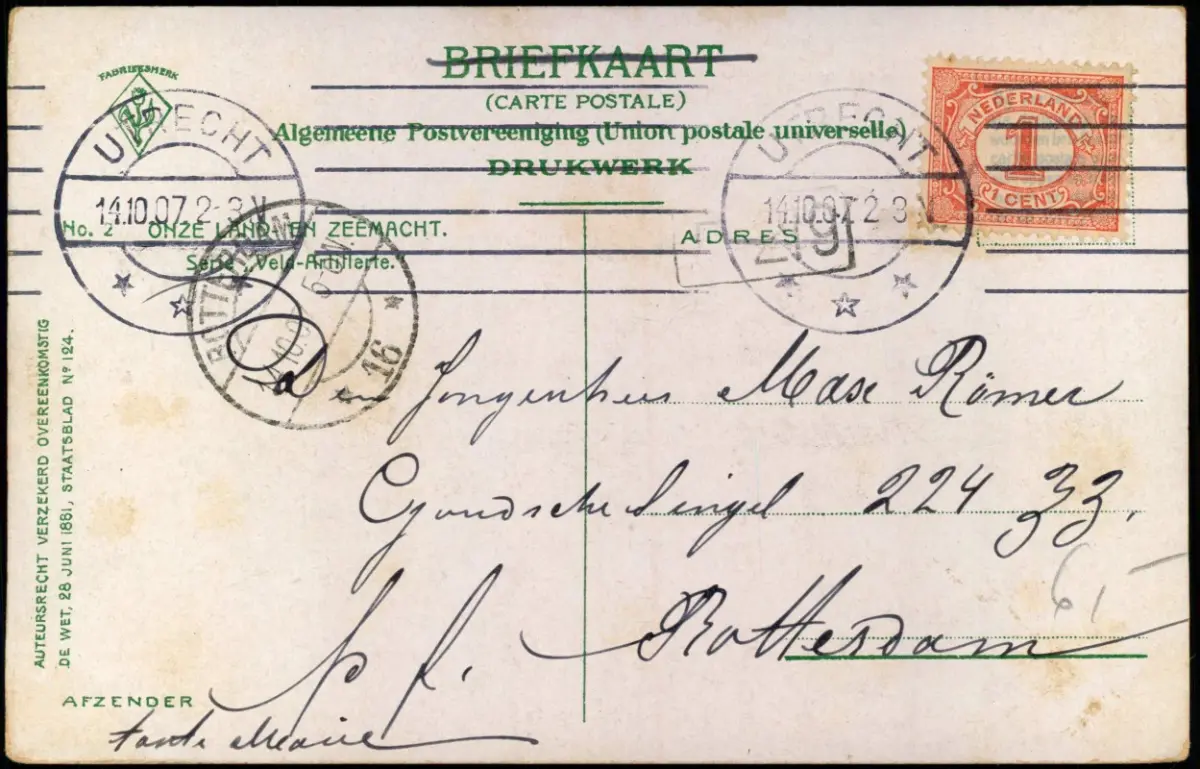 BRIEFKAART
(CARTE POSTALE)
Algemeene Postvereeniging (Union postale universelle)
DRUKWERK
FABRIEKSMERK
UTRECHT
14.10.07 2-3 N
UTRECHT
14.10.07 2-3 N
NEDERLAND
1
1 CENT
No. 2 ONZE LAND- EN ZEEMACHT.
Serie: Veld-Artillerie.
ADRES
ROTTERDAM
16
Jongenheer Max Römer
Goudsche Singel 224 zz.
Rotterdam
p f.
61
AUTEURSRECHT VERZEKERD OVEREENKOMSTIG
DE WET, 28 JUNI 1881, STAATSBLAD No 124.
AFZENDER
tante Marie